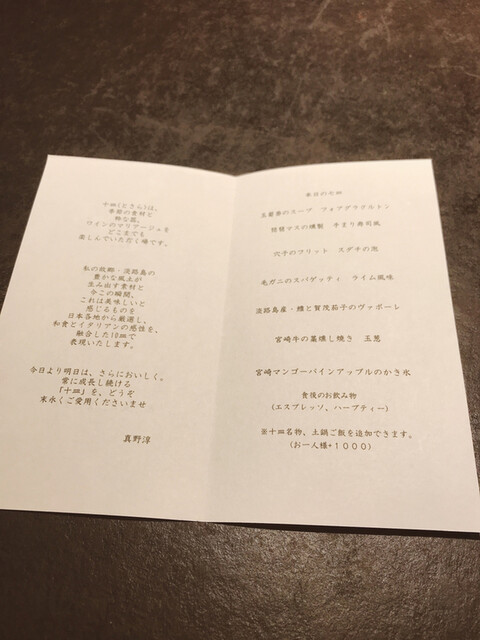 十皿(とさら)は、
季節の素材と
粋な器、
ワインのマリアージュを
どこまでも
楽しんでいただく場です。
私の故郷・淡路島の
豊かな風土が
生み出す素材と
今この瞬間、
これは美味しいと
感じるものを
日本各地から厳選し、
和食とイタリアンの感性を、
融合した10皿で
表現いたします。
今日より明日は、さらにおいしく。
常に成長し続ける
「十皿」を、どうぞ
末永くご愛用くださいませ
真野淳
本日の七皿
のスープ フォアグラクルトン
琵琶マスの燻製 手まり寿司風
穴子のフリット スダチの泡
毛ガニのスパゲッティ ライム風味
淡路島産・鱧と賀茂茄子のヴァポーレ
宮崎牛の藁燻し焼き 玉葱
宮崎マンゴーパインアップルのかき氷
食後のお飲み物
(エスプレッソ、ハーブティー)
※十皿名物、土鍋ご飯を追加できます。
(お一人様+1000)